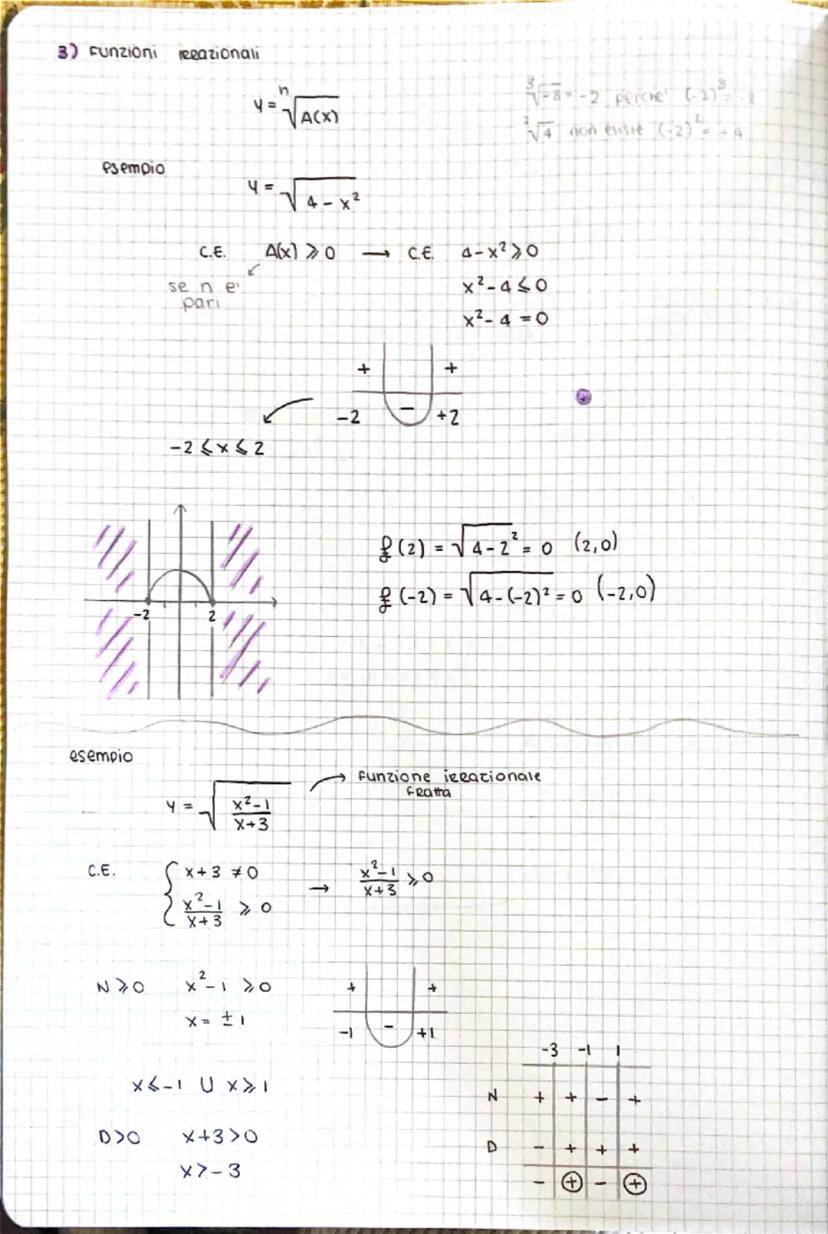 3) Funzioni irrazionali
y = ⁿ√A(x)
³√-8 = -2 perché (-2)³ = -8
²√4 non esiste (-2)² = +4
esempio
y = √4 - x²
C.E. A(x) ⩾ 0 → C.E. 4-x² ⩾ 0
se n è
pari
x² - 4 ⩽ 0
x² - 4 = 0
+ +
-2 - +2
-2 ⩽ x ⩽ 2
f(2) = √4-2² = 0 (2,0)
f(-2) = √4-(-2)² = 0 (-2,0)
-2 2
esempio
→ Funzione irrazionale
fratta
y = √(x²-1)/(x+3)
C.E. { x+3 ≠ 0
(x²-1)/(x+3) ⩾ 0 → (x²-1)/(x+3) ⩾ 0
N ⩾ 0 x²-1 ⩾ 0
x = ± 1
+ +
-1 - +1
x ⩽ -1 U x ⩾ 1
D>0 x+3>0
x > -3
-3 -1 1
N + + - +
D - + + +
- ⊕ - ⊕